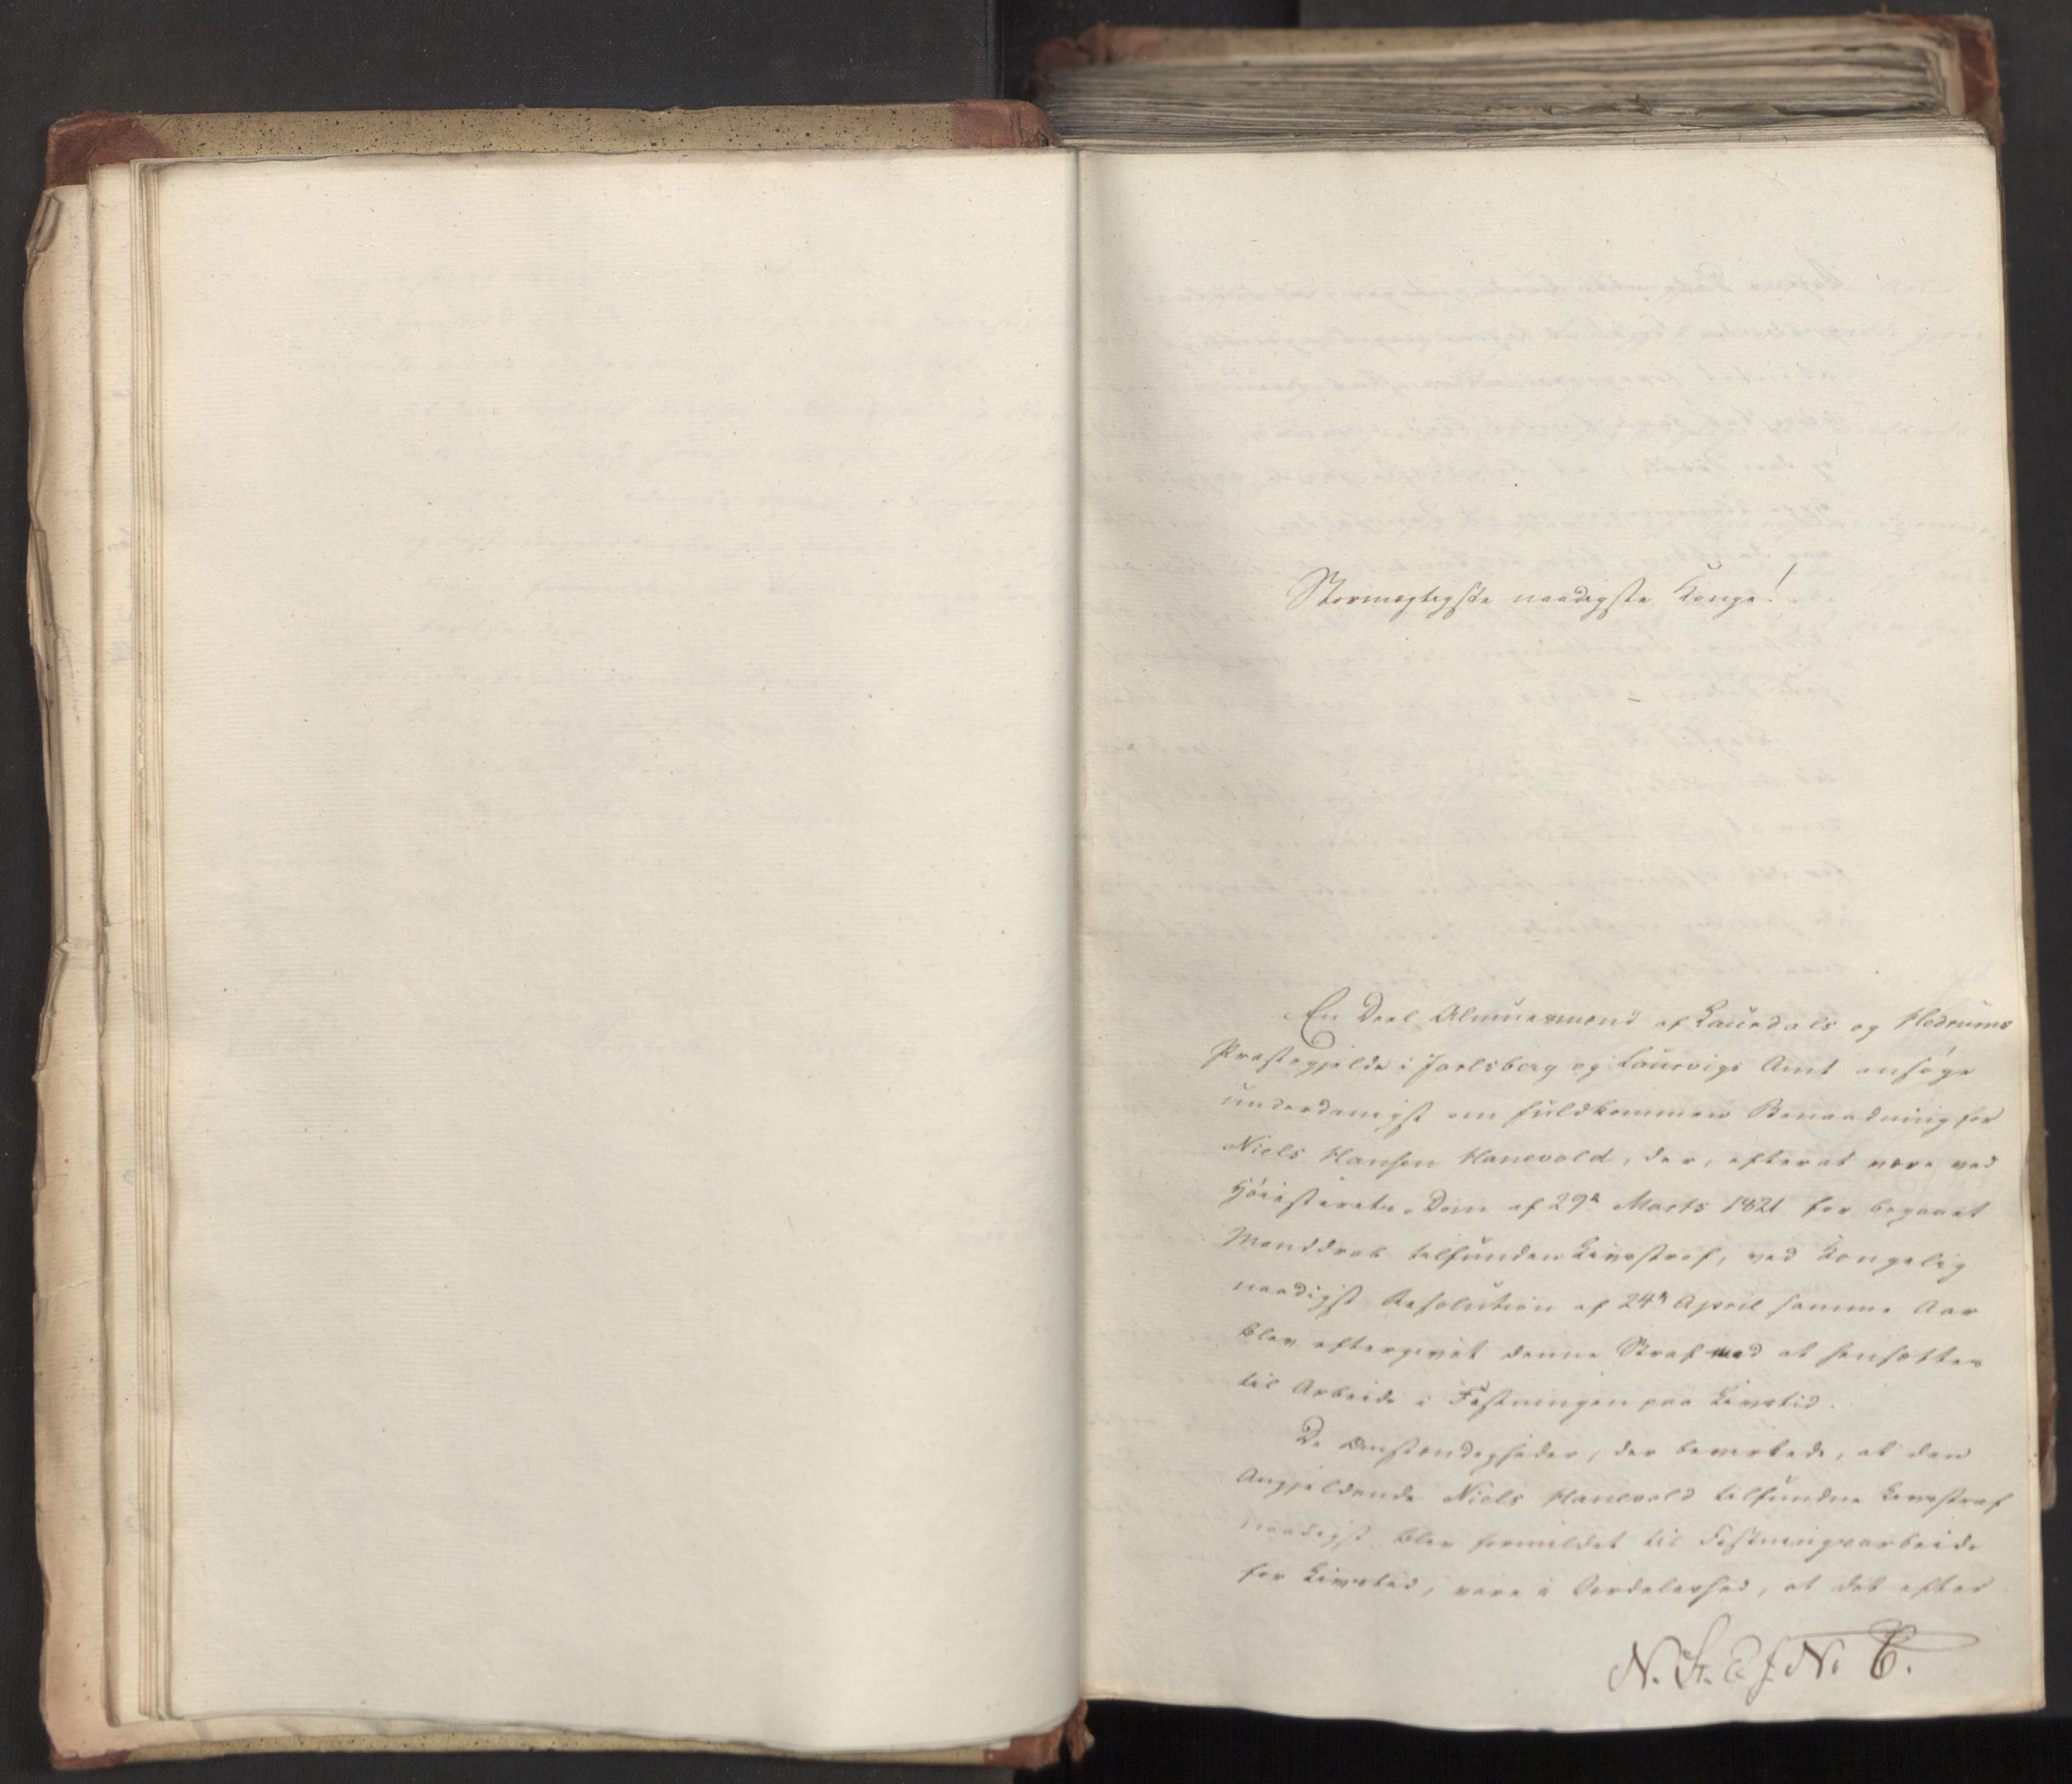 Stormægtigste naadigste Konge!
En Deel Almuesmænd af Laurdals og Hedrums
Præstegjelde i Jarlsberg og Laurvigs Amt ansøge
underdanigst om fuldkommen Benaadning for
Niels Hansen Hanevold, der, efterat være ved
Høiesterets Dom af 29de Marts 1821 for begaaet
Manddrab tilfunden Livsstraf, ved Kongelig
naadigst Resolution af 24de April samme Aar
blev eftergivet denne Straf mod at hensættes
til Arbeide i Fæstningen paa Livstid.
De Omstændigheder, der bevirkede, at den
Angjeldende Niels Hanevold tilfundne Livsstraf
naadigst blev formildet til Fæstningsarbeide
for Livstid, vare i Særdeleshed, at det efter
N. St. R. J. No 6.